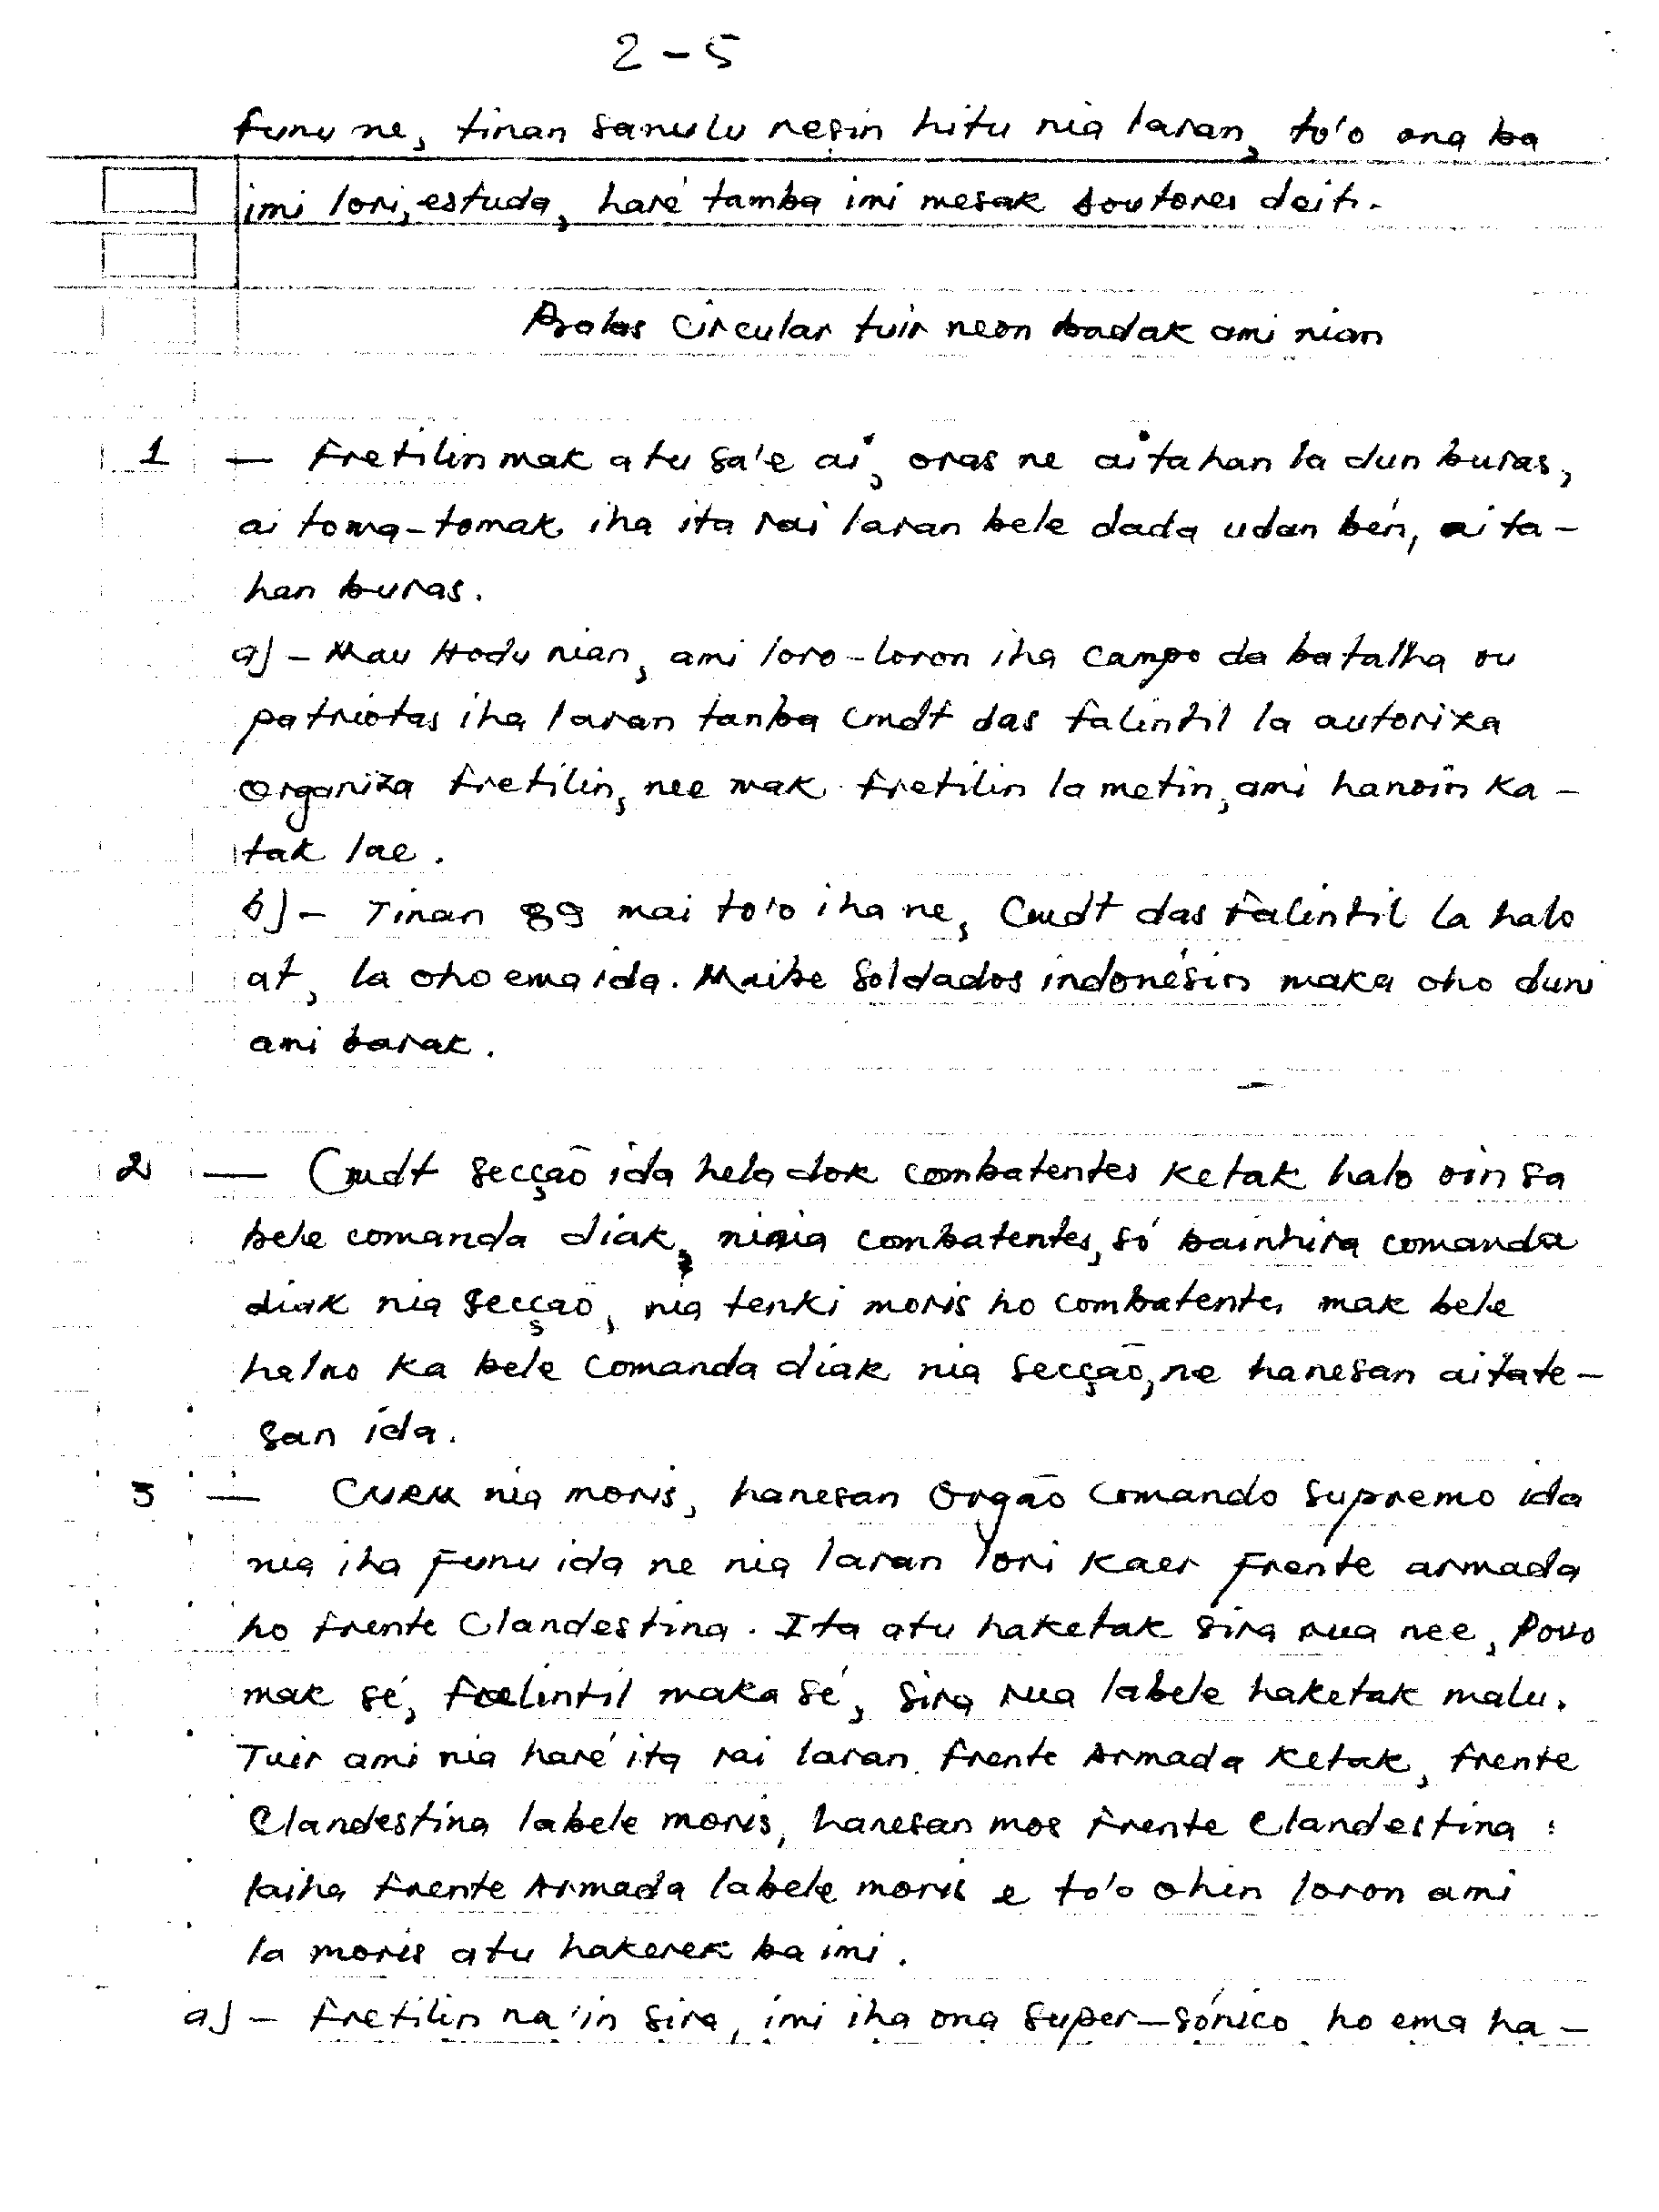 2 - 5
funu ne, tinan sanulu nesin hitu nia laran, to'o ona ba
imi lori, estuda, haré tamba imi mesak doutores deit.
Circular tuir neon badak ami nian
1 — Fretilin mak atu sa'e ai, oras ne aitahan la dun buras,
ai toma-tomak iha ita rai laran bele dada udan bén, ai ta-
han buras.
a) - Mau Hodu nian, ami loro-loron iha campo da batalha ou
patriotas iha laran tanba Cmdt das falintil la autoriza
organiza fretilin, nee mak fretilin la metin, ami hanoin ka-
tak lae.
b) - Tinan 89 mai to'o iha ne, Cmdt das Falintil la halo
at, la oho ema ida. Maibe soldados indonésin maka oho duni
ami barak.
2 — Cmdt secção ida hela dok combatentes ketak halo oin sa
bele comanda diak, ninia combatentes, só bainhira comanda
diak nia secção, nia tenki moris ho combatentes mak bele
halao ka bele comanda diak nia secção, ne hanesan aitate-
san ida.
3 — nia moris, hanesan Orgão Comando Supremo ida
nia iha Funu ida ne nia laran lori kaer Frente armada
ho frente Clandestina. Ita atu haketak sira rua nee, Povo
mak sé, falintil maka sé, sira rua labele haketak malu.
Tuir ami nia haré ita rai laran frente Armada ketak, frente
Clandestina labele moris, hanesan mos frente Clandestina
laiha frente Armada labele moris e to'o ohin loron ami
la moris atu hakerek ba imi.
a) - Fretilin na'in sira, imi iha ona super-sónico ho ema ha-